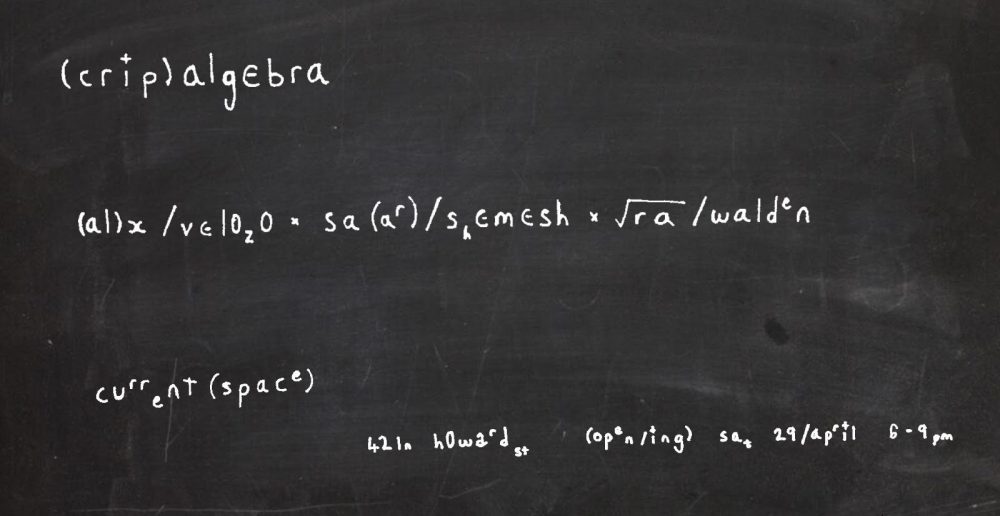 (crip)algebra
(al)x/velo₂0 * sa(aʳ)/sₕemesh * √ra/waldᵉn
cuʳʳₑnt(spacᵉ)
421n h0waʳdₛₜ (opᵉn/ing) saₜ 29/apʳil 6-9pm